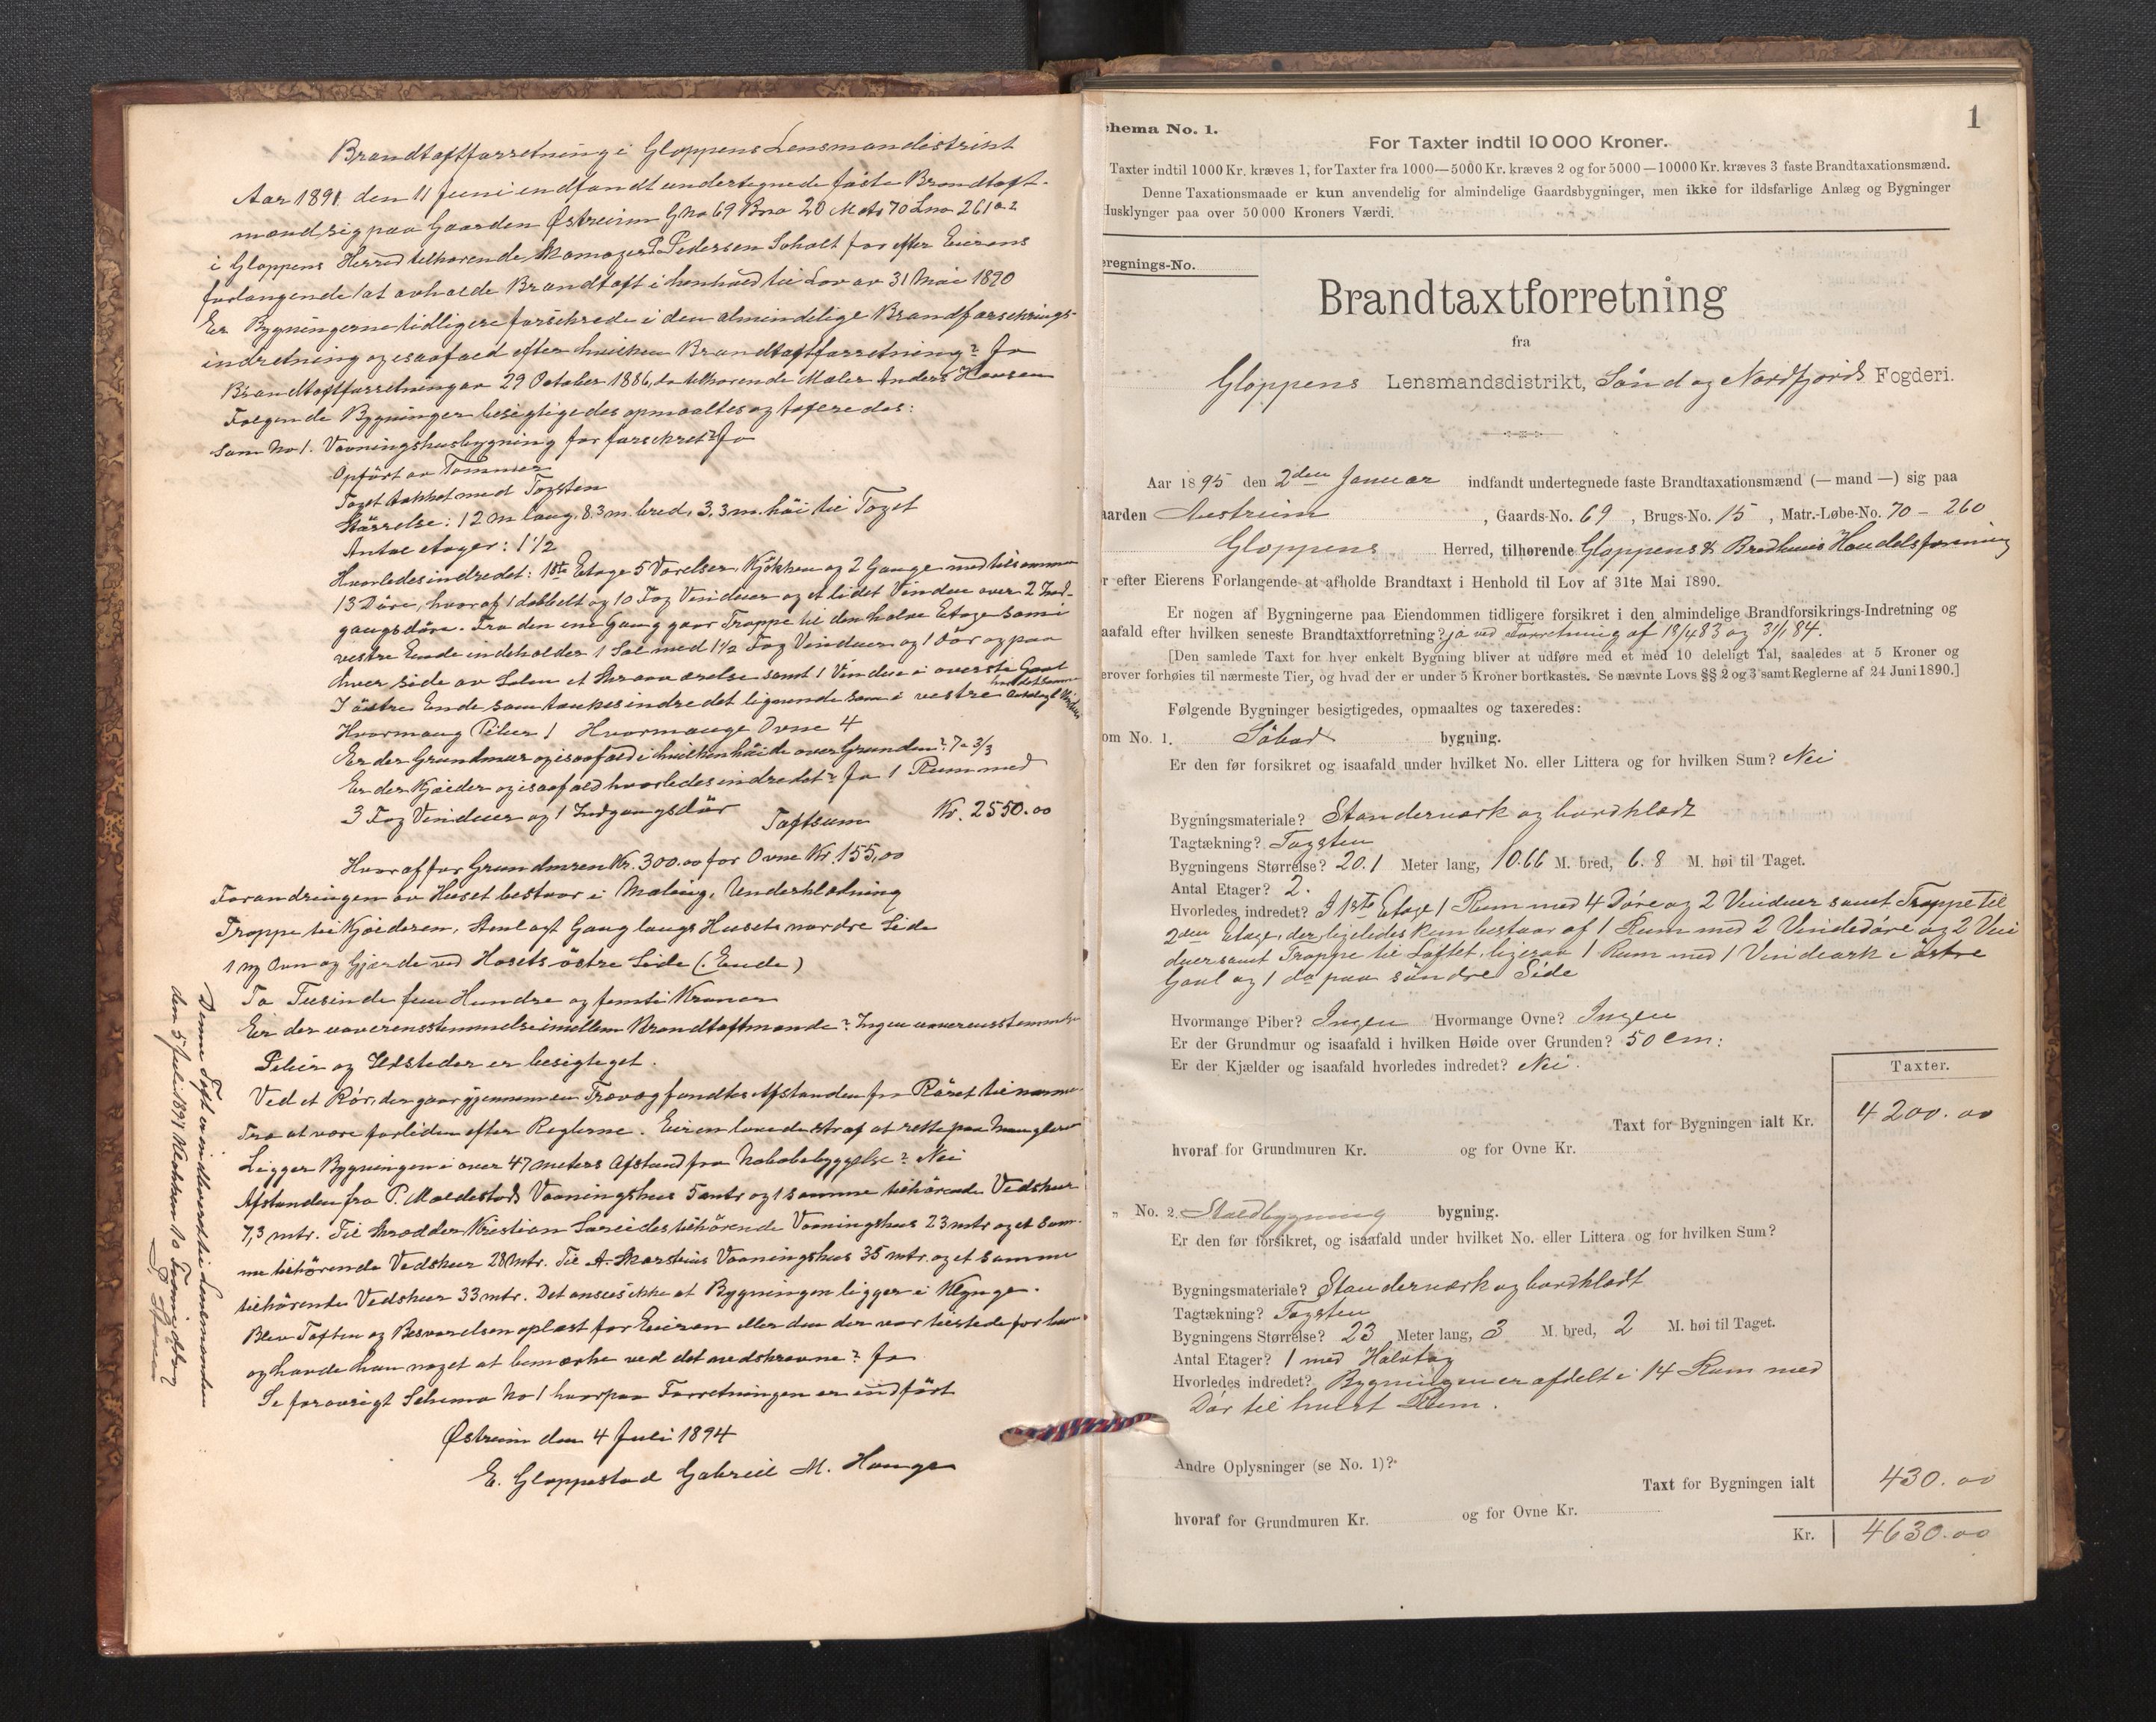 Brandtaftforretning i Gloppens Lensmandistrikt
Aar 1891 den 11 Juni indfandt undertegnede faste Brandtaft-
mænd sig paa Gaarden Østreim Gno 69 Bno 20 Mats 70 Lno 261 a2
i Gloppens Herred tilhørende Skomager P. Pedersen Soholt for efter Eierens
forlangende at avholde Brandtaft i henhold til Lov av 31 Mai 1890
Er Bygningerne tidligere forsikrede i den almindelige Brandforsikrings-
indretning og isaafald efter hvilken Brandtaftforretning? Ja
Brandtaftforretning av 29 October 1886, da tilhørende Maler Anders Hansen
Følgende Bygninger besigtigedes opmaaltes og taferedes:
Som No 1. Vaaningshusbygning før forsikret? Ja
Opført av Tømmer
Taget tækket med Tagsten
Størrelse: 12 m lang, 8,3 m. bred, 3,3 m. høi til Taget
Antal etager: 1 1/2
Hvorledes indredet: 1ste Etage 5 Værelser, Kjøkken og 2 Gange med tilsammen
13 Døre, hvoraf 1 dobbelt og 10 Fag Vinduer og et lidet Vindue over 2 Ind-
gangsdøre. Fra den ene Gang gaar Trappe til den halve Etage som i
vestre Ende indeholder 1 Sal med 1 1/2 Fag Vinduer og 1 Dør og paa
hver side av Salen et Skraaværelse samt 1 Vindue i øverste Gavl
I østre Ende som tænkes indredet lignende som i vestre
Hvormang Piber 1 Hvormange Ovne 4
Er der Grundmur og isaafald i hvilken høide over Grunden? Ja 3/3
Er der Kjælder og isaafald hvorledes indredet? Ja 1 Rum med
3 Fag Vinduer og 1 Indgangsdør Taftsum Kr. 2550.00
Hvoraf for Grundmuren Kr. 300.00 for Ovne Kr. 155,00
Forandringen av Huset bestaar i: Maling, Underklædning
Trappe til Kjælderen, Anlagt Gang langs Husets nordre Side
1 ny Ovn og Gjærde ved Husets østre Side (: Ende)
To Tusinde fem Hundre og femti Kroner
Er der uoverensstemmelse imellem Brandtaftmænde? Ingen uoverensstemmelse
Piber og Ildsteder er besigtiget.
Ved et Rør, der gaar gjennem en Trævæg fandtes Afstanden fra Røret til nærmeste
Træ at være forliden efter Reglerne. Eieren lovede straf at rette paa Manglen
Ligger Bygningen i over 47 meters Afstand fra Nabobebyggelse? Nei
Afstanden fra P. Mældestads Vaaningshus 5 mtr og 1 samme tilhørende Vedskur
7,3 mtr. Til Skrædder Kristian Sareides tilhørende Vaaningshus 23 mtr og et sam-
me tilhørende Vedskur 28 Mtr. Til A. Skarsteins Vaaningshus 35 mtr. og et samme
tilhørende Vedskur 33 mtr. Det ansees ikke at Bygningen ligger i Klynge.
Blev Taften og Besvarelsen oplæst for Eieren eller den der var tilstede for ham
og havde han noget at bemærke ved det nedskrevne? Ja
Se forøvrigt Schema No 1 hvorpaa Forretningen er indført
Østreim den 4 Juli 1894
E. Gloppestad Gabriel M. Hauge
Denne Taft er indleveret til Lensmanden
den 5 Juli 1894
1
hema No. 1.
For Taxter indtil 10 000 Kroner.
Taxter indtil 1000 Kr. kræves 1, for Taxter fra 1000—5000 Kr. kræves 2 og for 5000—10000 Kr. kræves 3 faste Brandtaxationsmænd.
Denne Taxationsmaade er kun anvendelig for almindelige Gaardsbygninger, men ikke for ildsfarlige Anlæg og Bygninger
Husklynger paa over 50 000 Kroners Værdi.
eregnings-No.
Brandtaxtforretning
fra
Gloppens Lensmandsdistrikt, Sønd og Nordfjords Fogderi.
Aar 1895 den 2den Januar indfandt undertegnede faste Brandtaxationsmænd (— mand —) sig paa
aarden Austreim, Gaards-No. 69, Brugs-No. 15, Matr.-Løbe-No. 70 - 260
Gloppens Herred, tilhørende Gloppens & Bredheims Handelsforening
r efter Eierens Forlangende at afholde Brandtaxt i Henhold til Lov af 31te Mai 1890.
Er nogen af Bygningerne paa Eiendommen tidligere forsikret i den almindelige Brandforsikrings-Indretning og
aafald efter hvilken seneste Brandtaxtforretning? ja ved Forretning af 18/4 83 og 31/1 84.
[Den samlede Taxt for hver enkelt Bygning bliver at udføre med et med 10 deleligt Tal, saaledes at 5 Kroner og
erover forhøies til nærmeste Tier, og hvad der er under 5 Kroner bortkastes. Se nævnte Lovs §§ 2 og 3 samt Reglerne af 24 Juni 1890.]
Følgende Bygninger besigtigedes, opmaaltes og taxeredes:
om No. 1. Søbod bygning.
Er den før forsikret og isaafald under hvilket No. eller Littera og for hvilken Sum? Nei
Bygningsmateriale? Standerværk og bordklædt
Tagtækning? Tagsten
Bygningens Størrelse? 20.1 Meter lang, 10.66 M. bred, 6.8 M. høi til Taget.
Antal Etager? 2.
Hvorledes indredet? I 1ste Etage 1 Rum med 4 Døre og 2 Vinduer samt Trappe til
2den Etage, der ligeledes kun bestaar af 1 Rum med 2 Vindedøre og 2 Vin
duer samt Trappe til Loftet, ligesaa 1 Rum med 1 Vindeark i østre
Gavl og 1 do paa søndre Side
Hvormange Piber? Ingen Hvormange Ovne? Ingen
Er der Grundmur og isaafald i hvilken Høide over Grunden? 50 cm:
Er der Kjælder og isaafald hvorledes indredet? Nei.
Taxter.
Taxt for Bygningen ialt Kr. 4200.00
hvoraf for Grundmuren Kr. og for Ovne Kr.
" No. 2. Staldbygning bygning.
Er den før forsikret, og isaafald under hvilket No. eller Littera og for hvilken Sum?
Bygningsmateriale? Standerværk og bordklædt
Tagtækning? Tagsten
Bygningens Størrelse? 23 Meter lang, 3 M. bred, 2 M. høi til Taget.
Antal Etager? 1 med Halvtag
Hvorledes indredet? Bygningen er afdelt i 14 Rum med
Dør til hvert Rum.
Andre Oplysninger (se No. 1)?
Taxt for Bygningen ialt 430.00
hvoraf for Grundmuren Kr. og for Ovne Kr.
Kr. 4630.00